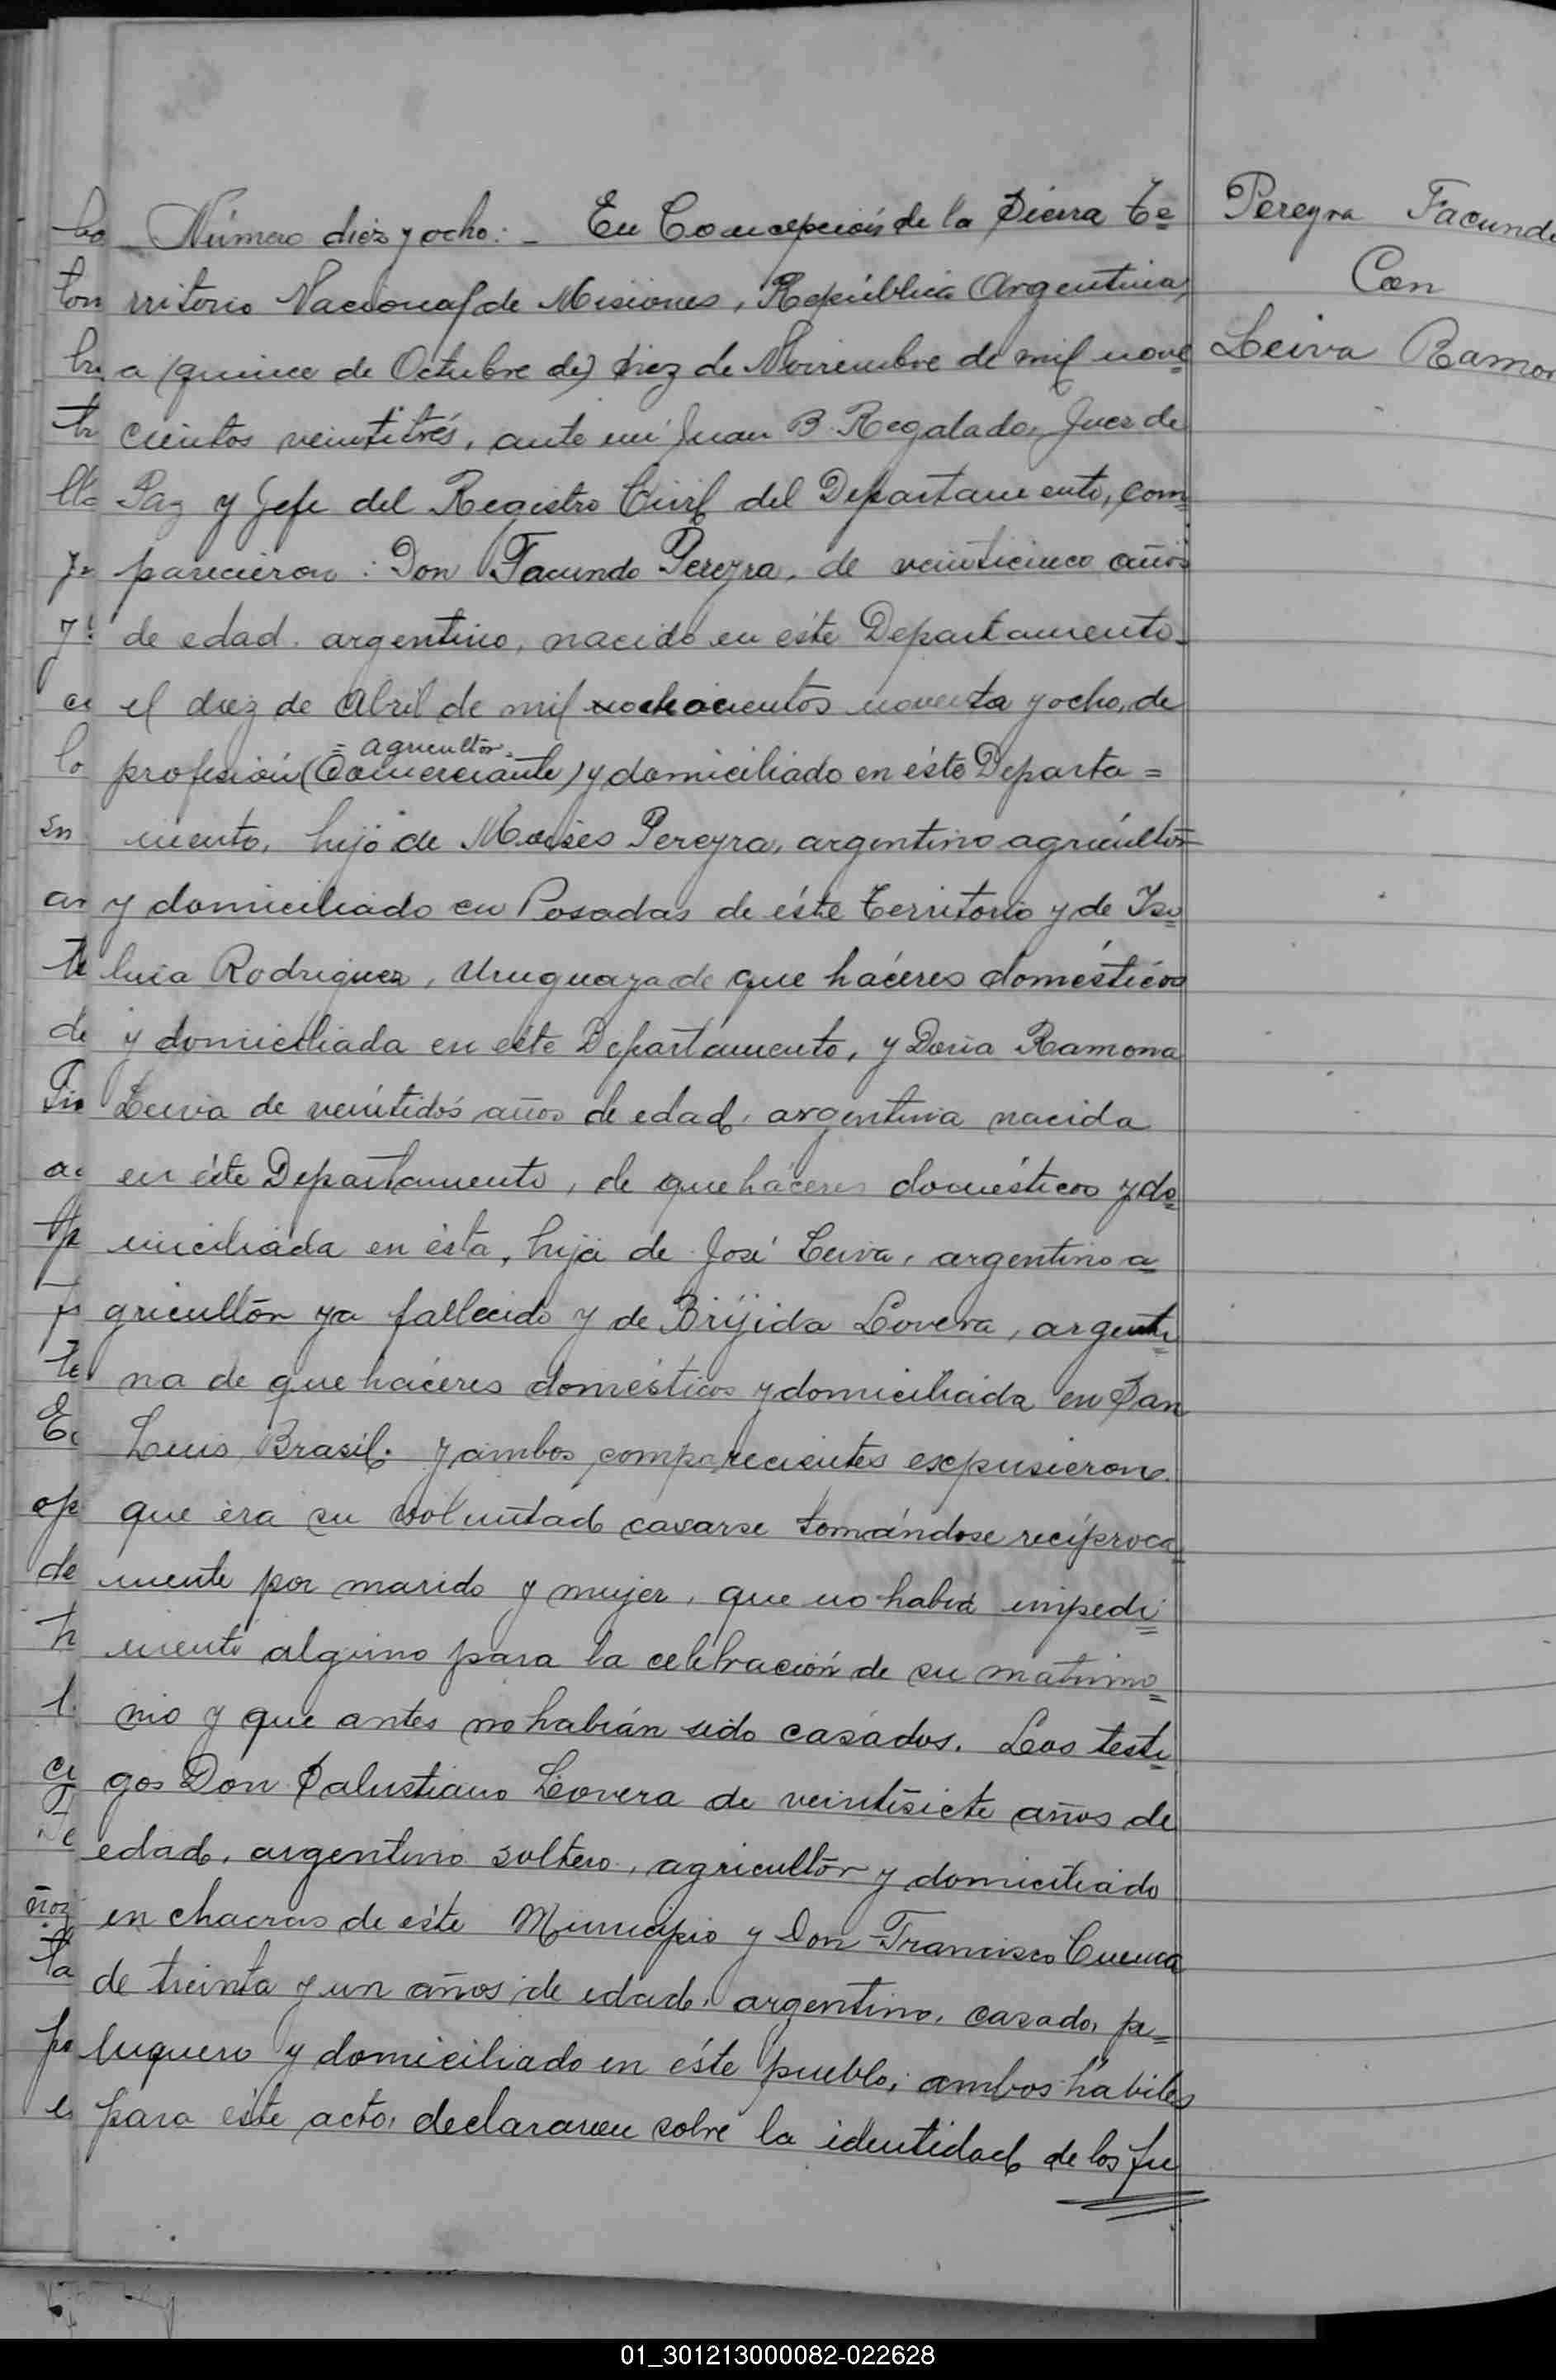 Número diez y ocho:- En Concepción de la Sierra Te=
rritorio Nacional de Misiones, República Argentina,
a (quince de Octubre de) diez de Noviembre de mil nove=
cientos veintitrés, ante mi Juan B. Regalado, Juez de
Paz y Jefe del Registro Civil del Departamento, com=
parecieron: Don Facundo Pereyra, de veinticinco años
de edad. argentino, nacido en éste Departamento-
el diez de Abril de mil ochocientos noventa y ocho, de
= agricultor.
profesión (Comerciante) y domiciliado en éste Departa=
mento, hijo de Moises Pereyra, argentino agricultor
y domiciliado en Posadas de éste Territorio y de Iso=
lina Rodriguez, Uruguaya de que háceres domésticos
y domiciliada en este Departamento, y Doña Ramona
Leiva de veintidós años de edad, argentina nacida
en éste Departamento, de que háceres domésticos y do=
miciliada en ésta, hija de José Leiva, argentino a=
gricultor ya fallecido y de Brijida Lovera, argenti=
na de que háceres domésticos y domiciliada en San
Luis, Brasil. y ambos comparecientes expusieron
que era su voluntad casarse tomándose recíproca=
mente por marido y mujer, que no había impedi=
mento alguno para la celebración de su matrimo=
nio y que antes no habían sido casados. Los testi=
gos Don Salustiano Lovera de veintisiete años de
edad, argentino soltero, agricultor y domiciliado
en chacras de éste Municipio y Don Francisco Cuenca
de treinta y un años de edad, argentino, casado, pe=
luquero y domiciliado en éste pueblo, ambos hábiles
para éste acto, declararon sobre la identidad de los fu
Pereyra Facund
Con
Leiva Ramon
01_301213000082-022628